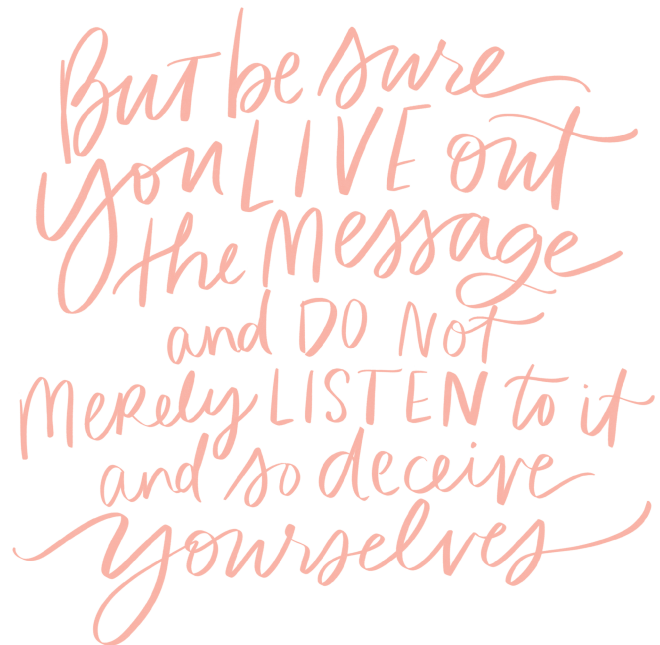 But be sure
you LIVE out
the Message
and DO Not
Merely LISTEN to it
and so deceive
yourselves